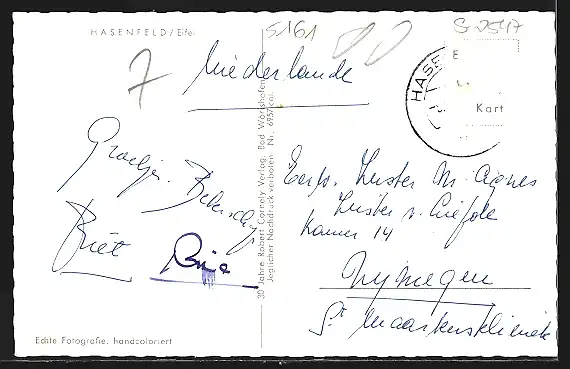 HASENFELD/Eifel
5161
S-2547
7
Niederlande
HASE
E
Kart
Groetjes
Piet
Ria
30 Jahre Robert Cornely Verlag, Bad Wörishofen
Jeglicher Nachdruck verboten Nr. 6957 col.
Eerw. Zuster M. Agnes
Zuster v. Liefde
Kamer 14
Nymegen
St Maartenskliniek
Echte Fotografie, handcoloriert